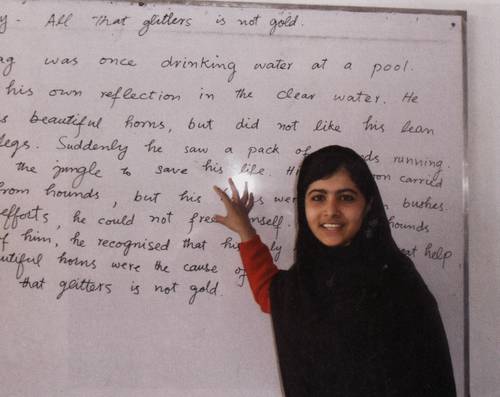 - All that glitters is not gold.
was once drinking water at a pool.
his own reflection in the clear water. He
beautiful horns, but did not like his lean
legs. Suddenly he saw a pack of running.
the jungle to save his life. carried
from hounds, but his bushes.
efforts, he could not hounds
of him, he recognised that help
horns were the cause of
that glitters is not gold.